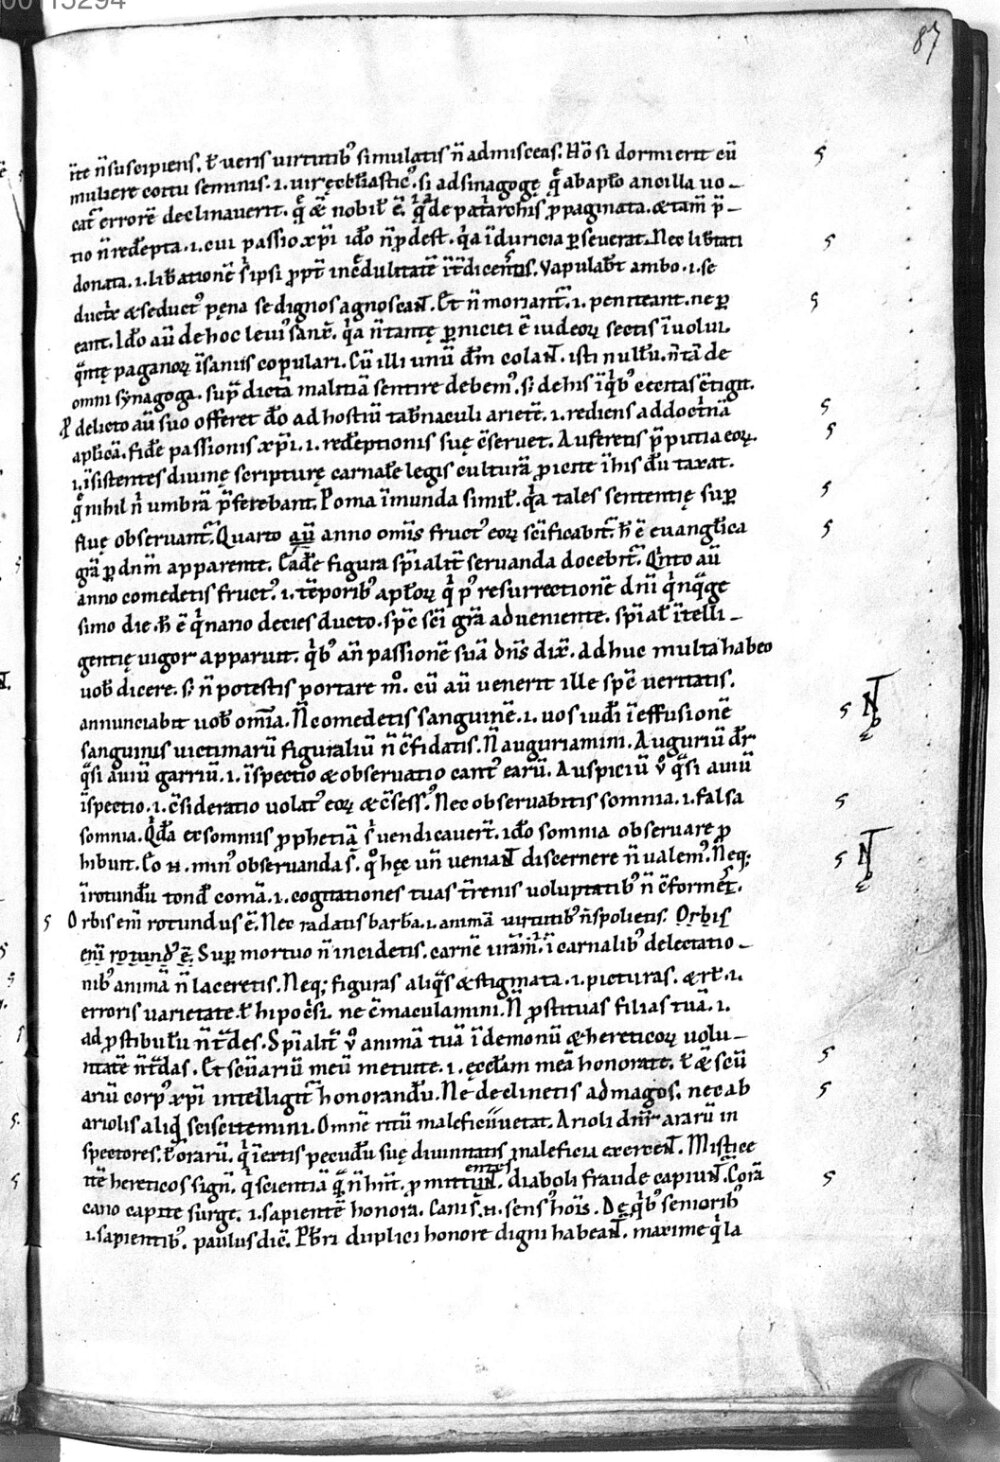 00115294
87
ite n̄ suscipiens. ł ueris uirtutib' simulatis n̄ admisceas. Hō si dormierit cū
muliere coitu seminis. i. uir ęccl̄iastic'. si ad sinagogę q̄ ab apl̄o ancilla uo-
cat̄ errorē declinauerit. q̄ & nobil̄ ē. q̇ de pat̄archis ꝓpaginata. & tam̄ p̄-
tio n̄ redēpta. i. cui passio xp̄i id̄o n̄ ꝓdest. q̇a ī duricia ꝑseuerat. Nec lib̄tati
donata. i. lib̄ationē s̄ ipsi ꝓpt̄ incredulitatē it̄dicentis. Vapulab̄t ambo. i. se
duct̄x & seduct' pęna se dignos agnoscant. Et n̄ moriant̄. i. peniteant. ne ꝑ
eant. Id̄o au̅ de hoc leui' sanx̄. q̇a n̄ tantę ꝑniciei ē iudeoꝝ sectis īuolui.
q̄ntę paganoꝝ īsaniis copulari. Cū illi unū d̄m colant. isti null̄u. n̄ tā de
omni synagoga. sup̄ dictā malitiā sentire debem'. s; de his ī q̇b' cecitas c̄tigit.
P delicto au̅ suo offeret d̄o ad hostiū tab̄naculi arietē. i. rediens ad doct̄nā
aplicā. fidē passionis xp̄i. i. redēptionis suę c̄seruet. Auferetis p̄putia eoꝝ.
i. īsistentes diuinę scripturę carnalē legis culturā ꝓicite ī his d̄u taxat.
q̄ nihil n̄ umbrā p̄ferebant. Poma īmunda simil̄. q̇a tales sententię suꝑ
fluę obseruant̄. Quarto au̅ anno omīs fruct' eoꝝ sc̄ificabit̄. h̄ ē euangl̄ica
gr̄a ꝑ dn̄m apparente. Eadē figura sp̄ialit̄ seruanda docebit̄. Q̇nto au̅
anno comedetis fruct'. i. tēporib' apl̄oꝝ q̇ p' resurrectionē dn̄i q̇nq̄ge
simo die. h̄ ē q̇nario decies ducto. sp̄c sc̄i gr̄a adueniente. sp̄ial̄ ītelli-
gentię uigor apparuit. q̇b' an̄ passionē suā dn̄s dix̄. adhuc multa habeo
uob̄ dicere. s; n̄ potestis portare m̊. cū au̅ uenerit ille sp̄c ueritatis.
annunciabit uob̄ om̄ia. N̄ comedetis sanguinē. i. uos iud̄i ī effusionē
sanguinis uictimarū figuraliū n̄ c̄fidatis. N̄ auguriamini. Auguriū d̄r
q̄si auiū garriū. i. īspectio & obseruatio cant' earū. Auspiciū v̊ q̄si auiū
īspectio. i. c̄sideratio uolat' eoꝝ & c̄sess'. Nec obseruabitis somnia. i. falsa
somnia. Q̇d̄a ex somniis ꝓphetiā s̄ uendicauer̄t. id̄o somnia obseruare ꝓ
hibuit. Eo n. min' obseruanda s̄. q̊ hęc un̄ ueniant discernere n̄ ualem'. Neq;
ī rotundu̅ tond̄ comā. i. cogitationes tuas t̄renis uoluptatib' n̄ c̄formēt.
Orbis eni̅ rotundus ē. Nec radatis barb̄a. i. animā uirtutib' n̄ spolietis. Orbis
eni̅ rotund' ē. Suꝑ mortuo n̄ incidetis. carnē urām. i. carnalib' delectatio-
nib' animā n̄ laceretis. Neq; figuras aliq̄s & stigmata. i. picturas. & rł. i.
erroris uarietate. ł hipoc̄si. ne c̄maculamini. N̄ ꝓstituas filias tuā. i.
ad ꝓstibulu̅ n̄ t̄des. Sp̄ialit̄ v̊ animā tuā ī demonū & hereticoꝝ uolu-
ntatē n̄ t̄das. Et scūariū meū metuite. i. ęccl̄am meā honorate. ł & scū
ariū corp' xp̄i intelligit̄ honorandu̅. Ne declinetis ad magos. nec ab
ariolis aliq̇d sciscitemini. Omnē ritū maleficii uetat. Arioli dn̄r ararū in
spectores. ł orarū. q̇ ī extis pecudu̅ suę diuinitatis maleficia exercent. Mistice
itē hereticos sign̄. q̇ scientiā q̄ n̄ hn̄t. ꝓmittunt. entes diaboli fraude capiunt̄. Corā
cano capite surge. i. sapientē honora. Cani s̄. n. sens' hoīs. De q̇b' seniorib'
i. sapientib'. paulus dic̄. Pb̄ri duplici honore digni habeant. maxime q̇ la